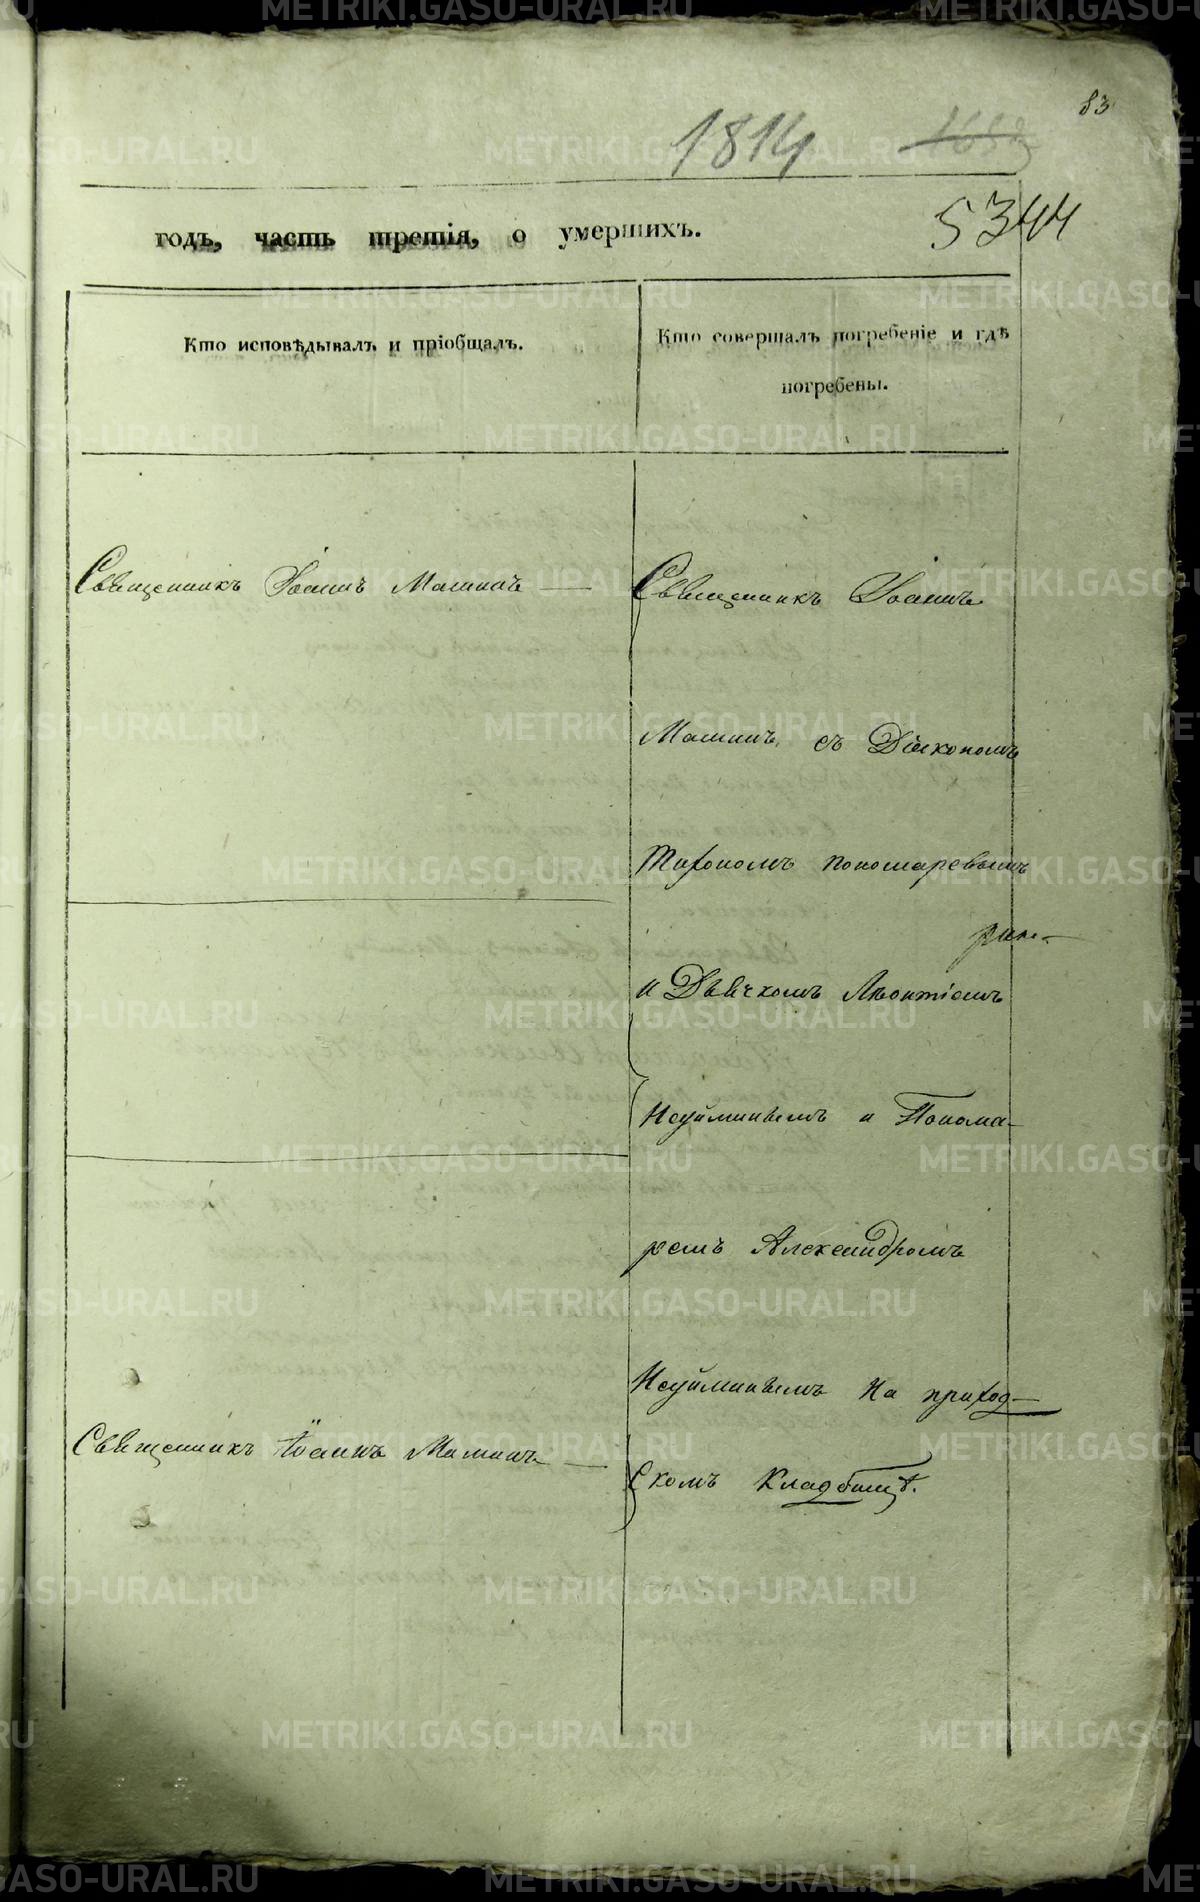 83
1814
5344
годъ, часть третія, о умершихъ.
Кто исповѣдывалъ и пріобщалъ.
Кто совершалъ погребеніе и гдѣ
погребены.
Священникъ Іоаннъ Маминъ —
Священникъ Іоаннъ
Маминъ, съ Діакономъ
Тихономъ Пономаревымъ
и Дьячкомъ Леонтіемъ
Неуйминымъ и Понома-
ремъ Александромъ
Неуйминымъ на приход-
скомъ кладбищѣ.
Священникъ Іоаннъ Маминъ —
METRIKI.GASO-URAL.RU